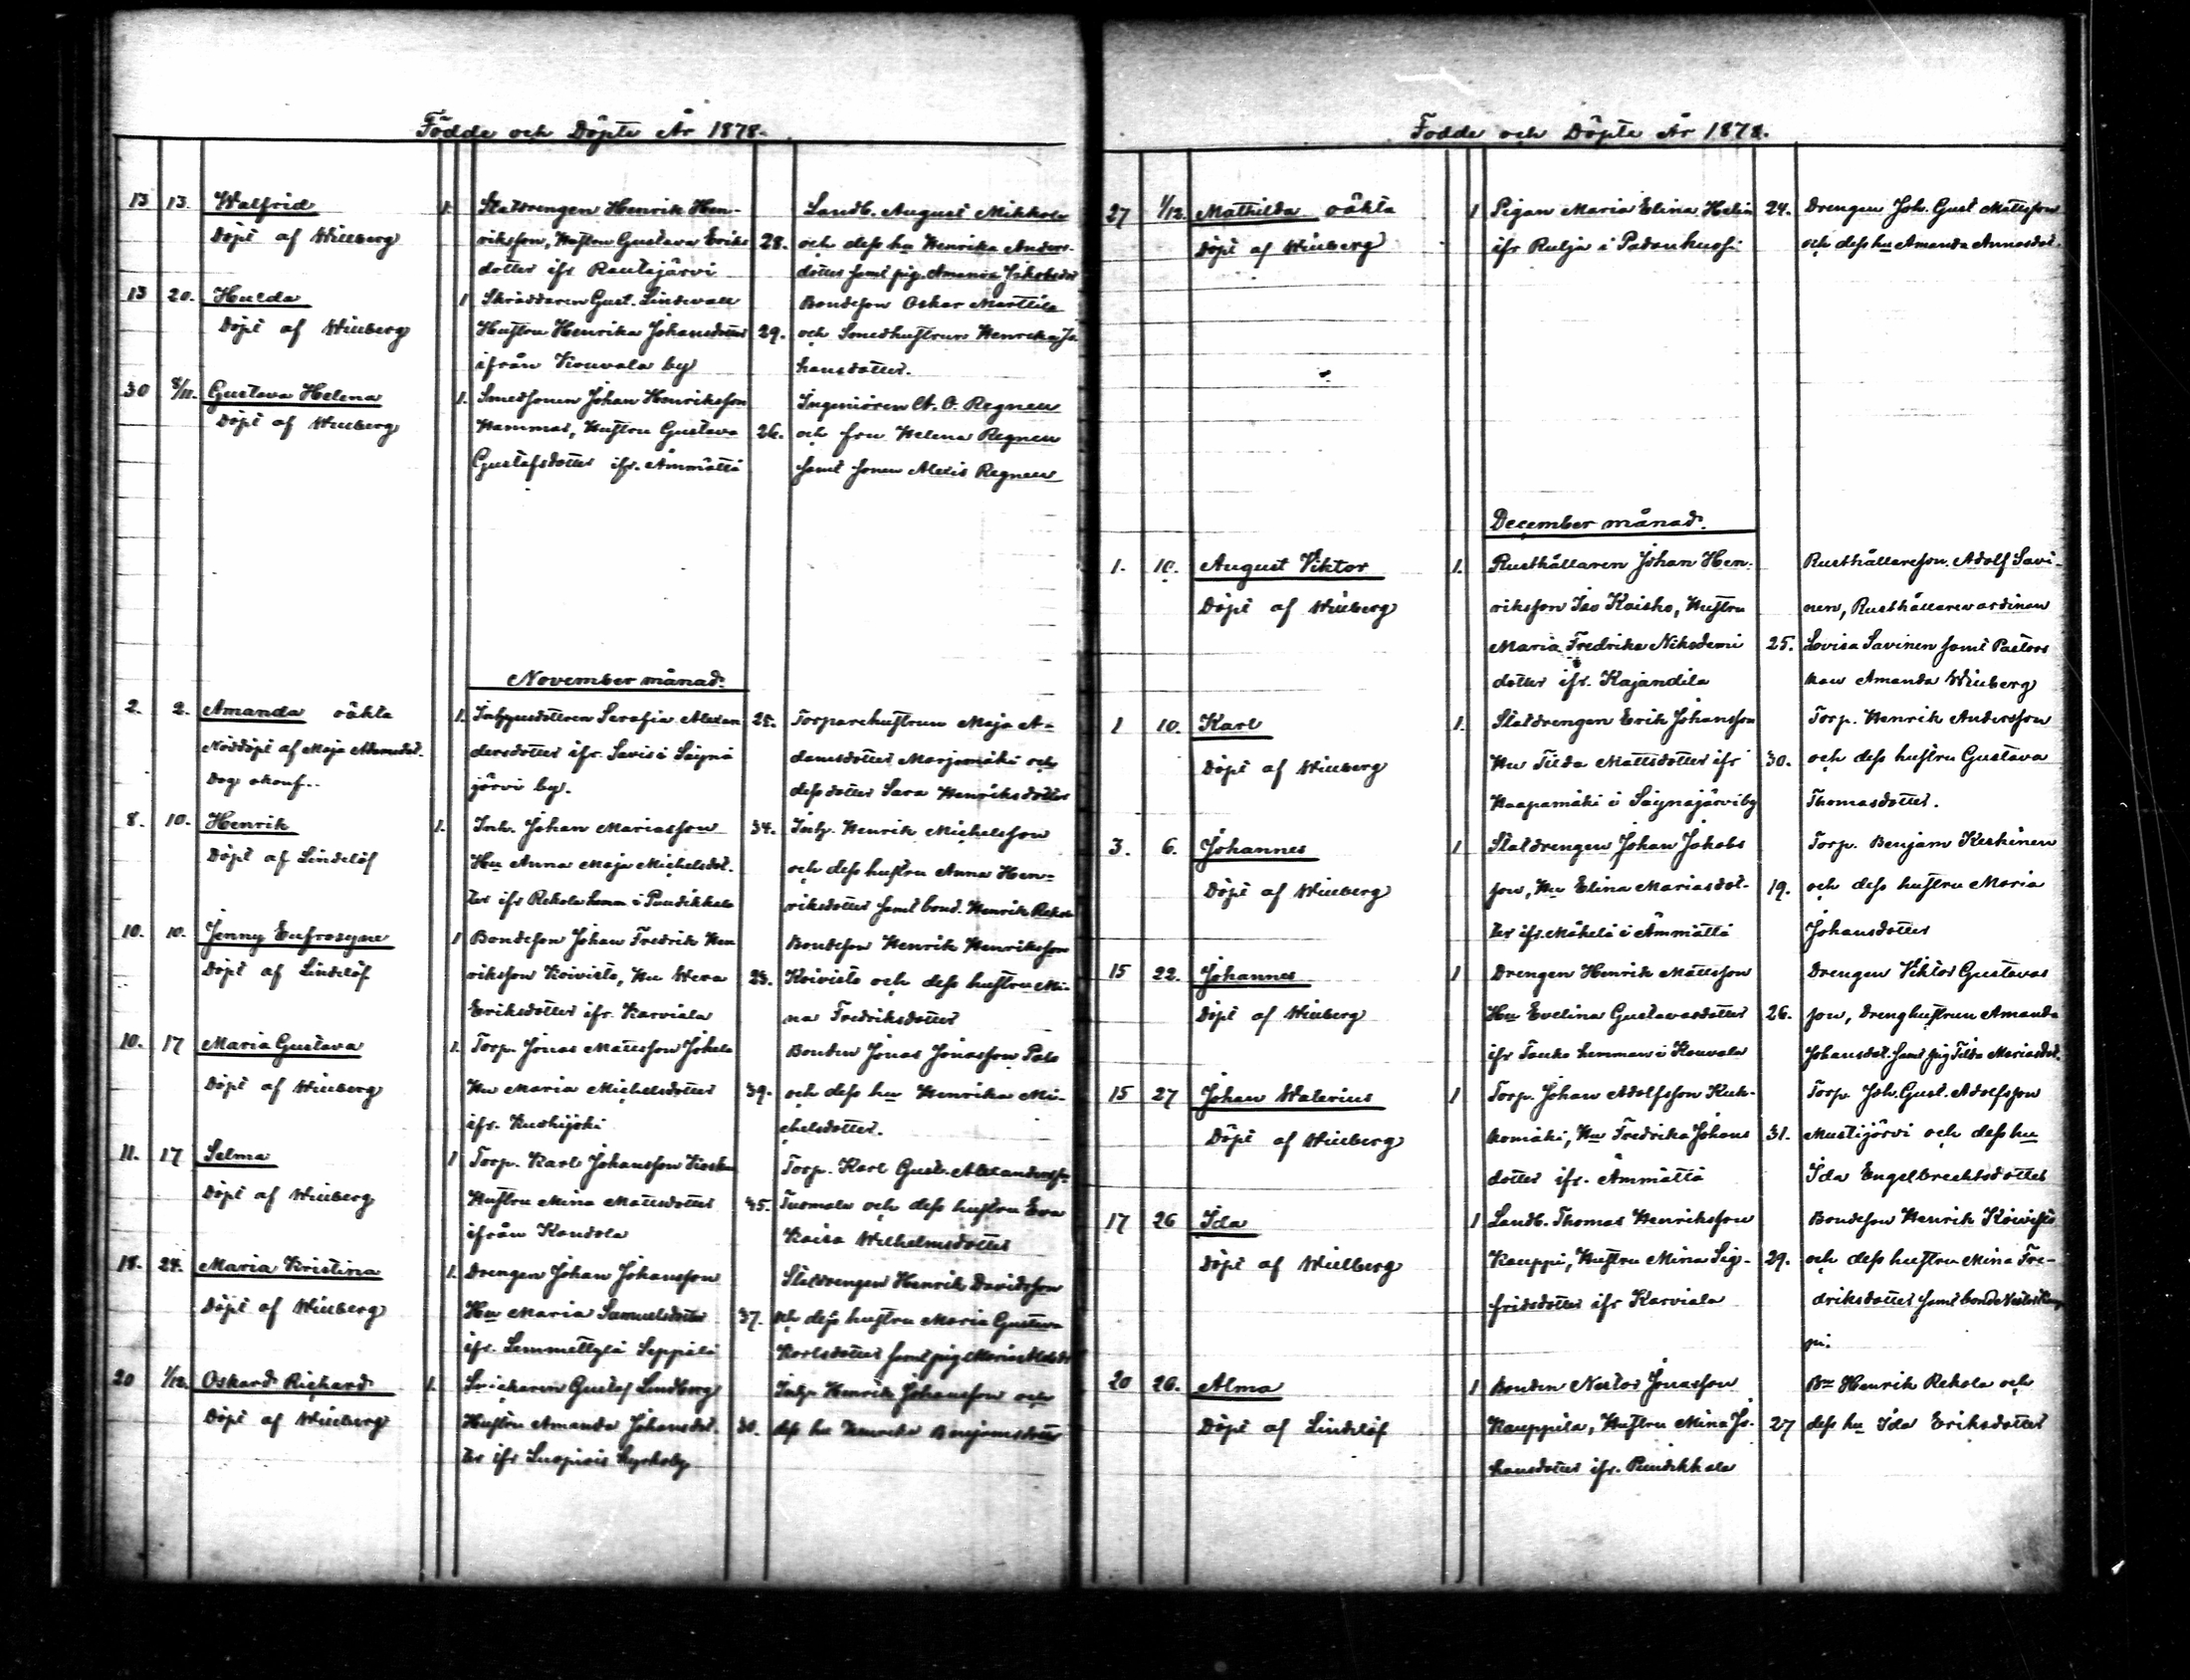 Födde och Döpte År 1878.
13 13. Walfrid 1. Statdrengen Henrik Hen- Landb. August Mikkola
Döpt af Winberg riksson, Hustru Gustava Eriks 28. och dess hu Henrika Anders-
dotter ifr Rautajärvi dotter samt pig. Amanda Jakobsdot
13 20. Hulda 1 Skräddaren Gust. Lindevall Bondeson Oskar Marttila
Döpt af Winberg Hustru Henrika Johansdotter 29. och Smedhustrun Henrika Jo-
ifrån Kouvala by hansdotter.
30 8/11. Gustava Helena 1. Smedsonen Johan Henriksson Ingeniören A. O. Regnell
Döpt af Winberg Hammar, Hustru Gustava 26. och fru Helena Regnell
Gustafsdotter ifr. Ämmättä samt sonen Alexis Regnell
November månad.
2. 2. Amanda oäkta 1. Inhysesdottren Serafia Alexan 25. Torparehustrun Maja A-
Nöddöpt af Maja Adamsdot. dersdotter ifr. Savisi Säynä damsdotter Marjomäki och
Dog okonf.. järvi by. dess dotter Sara Henriksdotter
8. 10. Henrik 1. Inh. Johan Mariasson 34. Inhy. Henrik Michelsson
Döpt af Lindelöf Hu Anna Maja Michelsdot. och dess hustru Anna Hen-
ter ifr Rekola hem i Puudikkala riksdotter samt bond. Henrik Rekola
10. 10. Jenny Eufrosyne 1 Bondeson Johan Fredrik Hen Bondeson Henrik Henriksson
Döpt af Lindelöf riksson Koivisto, Hu Wera 23. Koivisto och dess hustru Mi-
Eriksdotter ifr. Karviala na Fredriksdotter
10. 17 Maria Gustava 1. Torp. Jonas Mattsson Jokela Bonden Jonas Jonasson Palo
Döpt af Winberg Hu Maria Michelsdotter 39. och dess hu Henrika Mi-
ifr. Kuohijoki chelsdotter.
11. 17 Selma 1 Torp. Karl Johansson Torp. Karl Gust. Alexandersson
Döpt af Winberg Hustru Mina Mattsdotter 45. Tuomala och dess hustru Eva
ifrån Kandola Kaisa Wilhelmsdotter
18. 24. Maria Kristina 1. Drengen Johan Johansson Statdrengen Henrik Davidsson
Döpt af Winberg Hu Maria Samuelsdotter 37. och dess hustru Maria Gustava
ifr. Lemmettylä Seppälä Karlsdotter samt pig Maria
20 1/12. Oskard Richard 1. Gustaf Lindberg Inhy. Henrik Johansson och
Döpt af Winberg Hustru Amanda Johansdot. 30. dess hu Henrika Benjamsdotter
ter ifr Luopiois kyrkoby
Födde och Döpte År 1878.
27 1/12. Mathilda oäkta 1 Pigan Maria Elina Helin 24. Drengen Joh. Gust Mattsson
Döpt af Winberg ifr Rulja i Padankuosi och dess hu Amanda Annasdot.
December månad.
1. 10. August Viktor 1. Rusthållaren Johan Hen- Rusthållareson. Adolf Savi-
Döpt af Winberg riksson Iso Kaisko, Hustru nen, Rusthållarevärdinan
Maria Fredrika Nikodemi 25. Lovisa Savinen samt Pastors
dotter ifr. Kajandila kan Amanda Winberg
1 10. Karl 1. Statdrengen Erik Johansson Torp. Henrik Andersson
Döpt af Winberg Hu Tilda Mattsdotter ifr 30. och dess hustru Gustava
Haapamäki i Säynäjärvi by Thomasdotter.
3. 6. Johannes 1 Statdrengen Johan Jakobs Torp. Benjam Keskinen
Döpt af Winberg son, Hu Elina Mariasdot- 19. och dess hustru Maria
ter ifr. Mäkelä i Ämmättä Johansdotter
15 22. Johannes 1 Drengen Henrik Mattsson Drengen Viktor Gustavas
Döpt af Winberg Hu Evelina Gustavasdotter 26. son, Drenghustrun Amanda
ifr Tauko hemman i Kouvala Johansdot. samt pig Tilda Mariasdot.
15 27 Johan Walerius 1 Torp. Johan Adolfsson Kuk- Torp. Joh. Gust. Adolfsson
Döpt af Winberg komäki, Hu Fredrika Johans 31. Mustijärvi och dess hu
dotter ifr. Ämmättä Ida Engelbrechtsdotter
17 26 Ida 1 Landb. Thomas Henriksson Bondeson Henrik Koivisto
Döpt af Winberg Kauppi, Hustru Mina Sig- 29. och dess hustru Mina Fre-
fridsdotter ifr Karviala driksdotter samt bonde Nestor Kaup
pi.
20 26. Alma 1 Bonden Nestor Jonasson Bn Henrik Rekola och
Döpt af Lindelöf Kauppila, Hustru Mina Jo- 27 dess hu Ida Eriksdotter
hansdotter ifr. Puudikkala